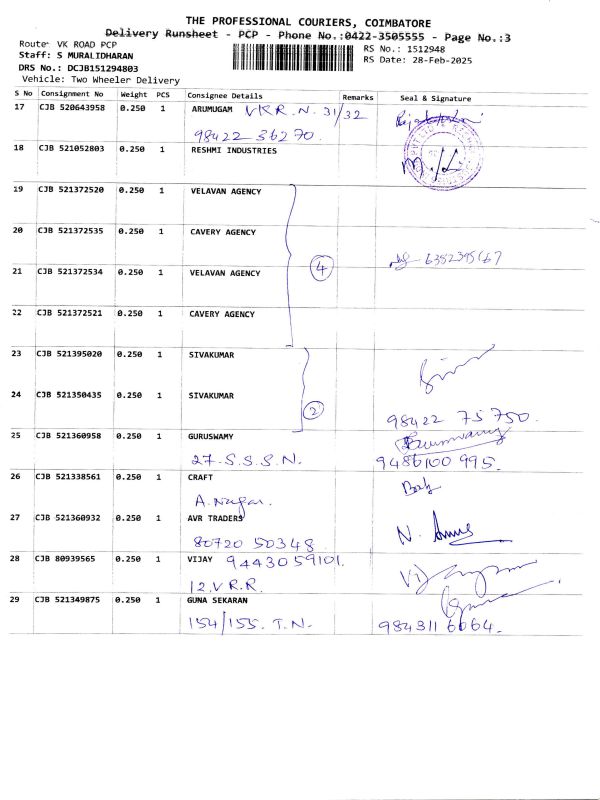 THE PROFESSIONAL COURIERS, COIMBATORE
Delivery Runsheet - PCP - Phone No.:0422-3505555 - Page No.:3
Route: VK ROAD PCP RS No.: 1512948
Staff: S MURALIDHARAN RS Date: 28-Feb-2025
DRS No.: DCJB151294803
Vehicle: Two Wheeler Delivery
S No Consignment No Weight PCS Consignee Details Remarks Seal & Signature
17 CJB 520643958 0.250 1 ARUMUGAM V.K.R.N. 31/32
98422 36270.
18 CJB 521052803 0.250 1 RESHMI INDUSTRIES
19 CJB 521372520 0.250 1 VELAVAN AGENCY
20 CJB 521372535 0.250 1 CAVERY AGENCY
4 6352395167
21 CJB 521372534 0.250 1 VELAVAN AGENCY
22 CJB 521372521 0.250 1 CAVERY AGENCY
23 CJB 521395020 0.250 1 SIVAKUMAR
24 CJB 521350435 0.250 1 SIVAKUMAR
2 98422 75750.
25 CJB 521360958 0.250 1 GURUSWAMY
27. S.S.S.N. 9486100 995.
26 CJB 521338561 0.250 1 CRAFT
A. Nagar.
27 CJB 521360932 0.250 1 AVR TRADERS
80720 50348.
28 CJB 80939565 0.250 1 VIJAY 9443059101.
12, V.R.R.
29 CJB 521349875 0.250 1 GUNA SEKARAN
154/155. T.N. 9843116064.